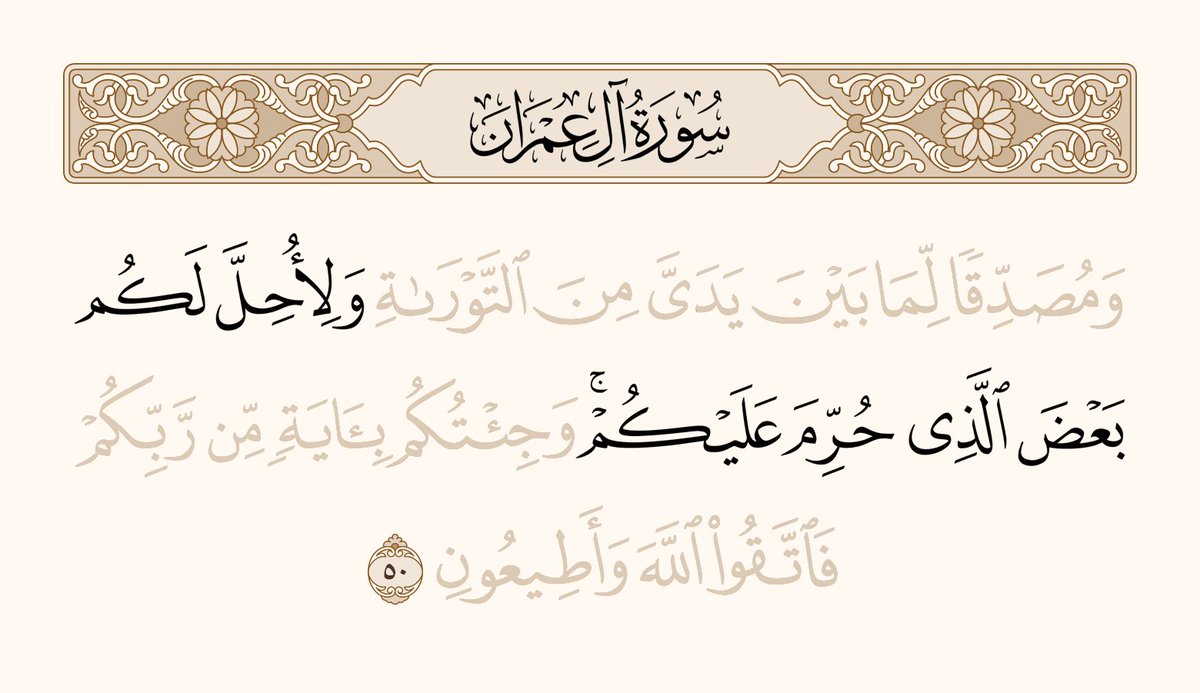 سُورَةُ آلِ عِمْرَان
وَمُصَدِّقًا لِّمَا بَيْنَ يَدَىَّ مِنَ ٱلتَّوْرَىٰةِ وَلِأُحِلَّ لَكُم
بَعْضَ ٱلَّذِى حُرِّمَ عَلَيْكُمْ ۚ وَجِئْتُكُم بِـَٔايَةٍ مِّن رَّبِّكُمْ
فَٱتَّقُوا۟ ٱللَّهَ وَأَطِيعُونِ ٥٠